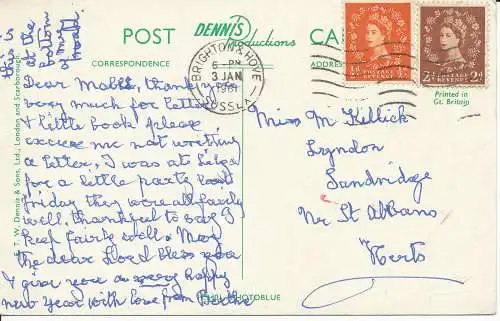 is
this
at the
bottom
of my
POST CARD
DENNIS
Productions
CORRESPONDENCE
ADDRESS
BRIGHTON & HOVE
6 - PM
3 JAN
1961
SUSSEX
POSTAGE
REVENUE
½d
2d 2d
Printed in
Gt. Britain
E. T. W. Dennis & Sons, Ltd., London and Scarborough.
Dear Mabel, thank you
very much for letter
& little book please
excuse me not writing
a letter, I was at
for a little party last
friday they were all fairly
well. thankful to say I
keep fairly well. May
the dear Lord bless you
& give you a very happy
new Year with love from Berthe
Miss M Killick
Lyndon
Sandridge
Nr St Albans
Herts
PHOTOBLUE